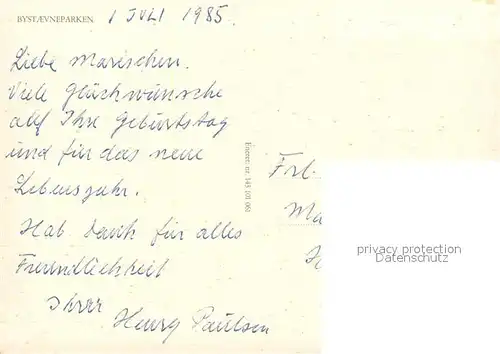 BYSTÆVNEPARKEN
1 JULI 1985.
Liebe Marischen.
Viele Glückwünsche
auf Ihre Geburtstag
und für das neue
Lebensjahr.
Hab Dank für alles
Freundlichkeit
Ihrer
Henry Paulsen
Eneret: nr. 145 101 061
Frl.
Ma
privacy protection
Datenschutz